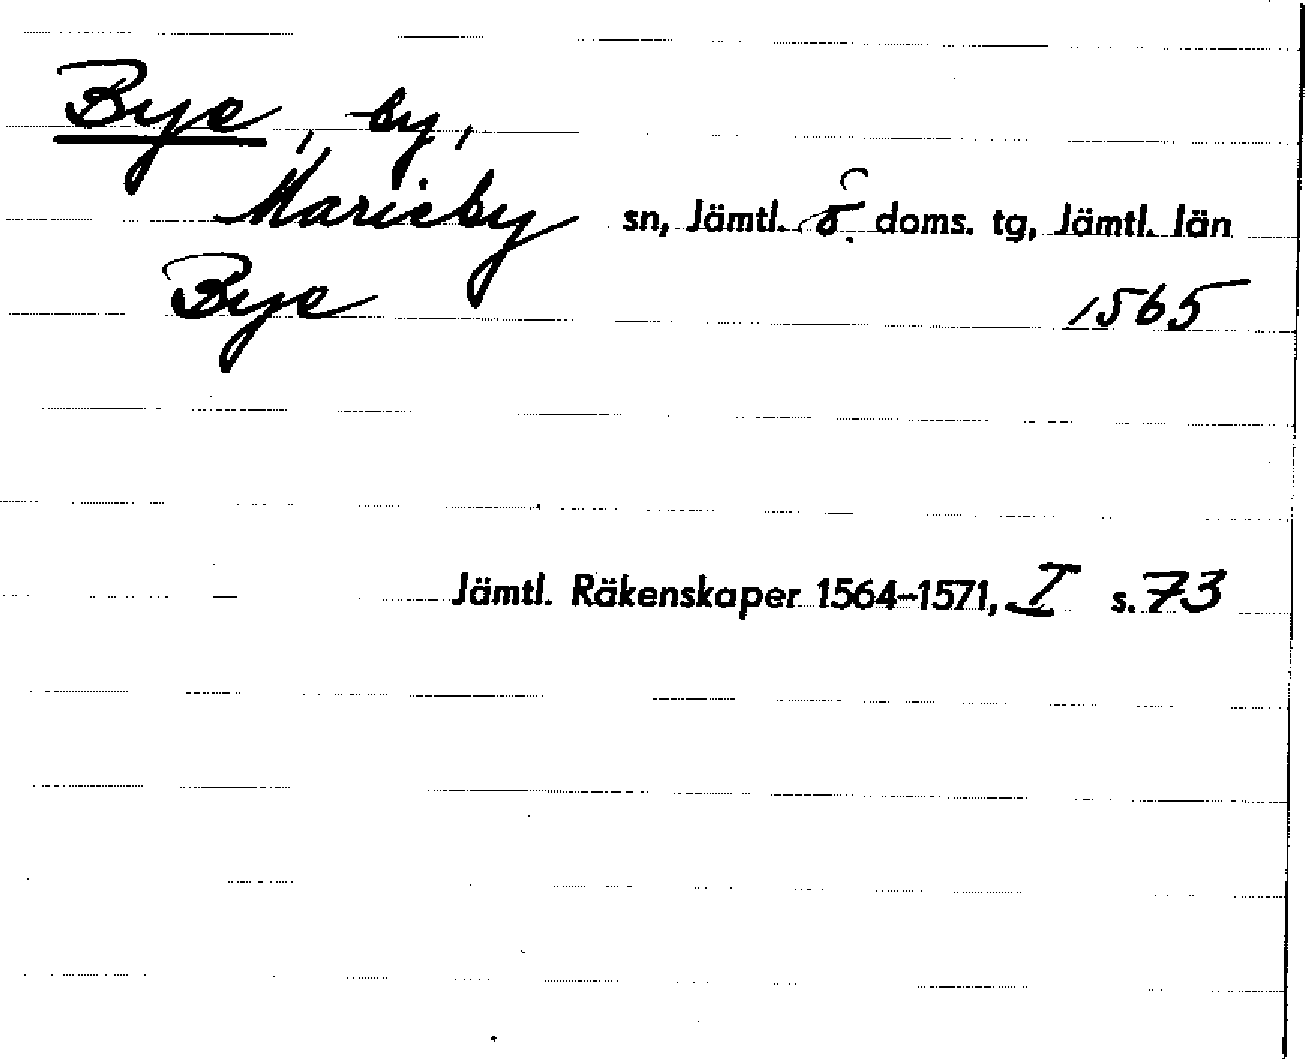 Bye, by,
Marieby sn, Jämtl. ö. doms. tg, Jämtl. län
Bye 1565
Jämtl. Räkenskaper 1564–1571, I s. 73